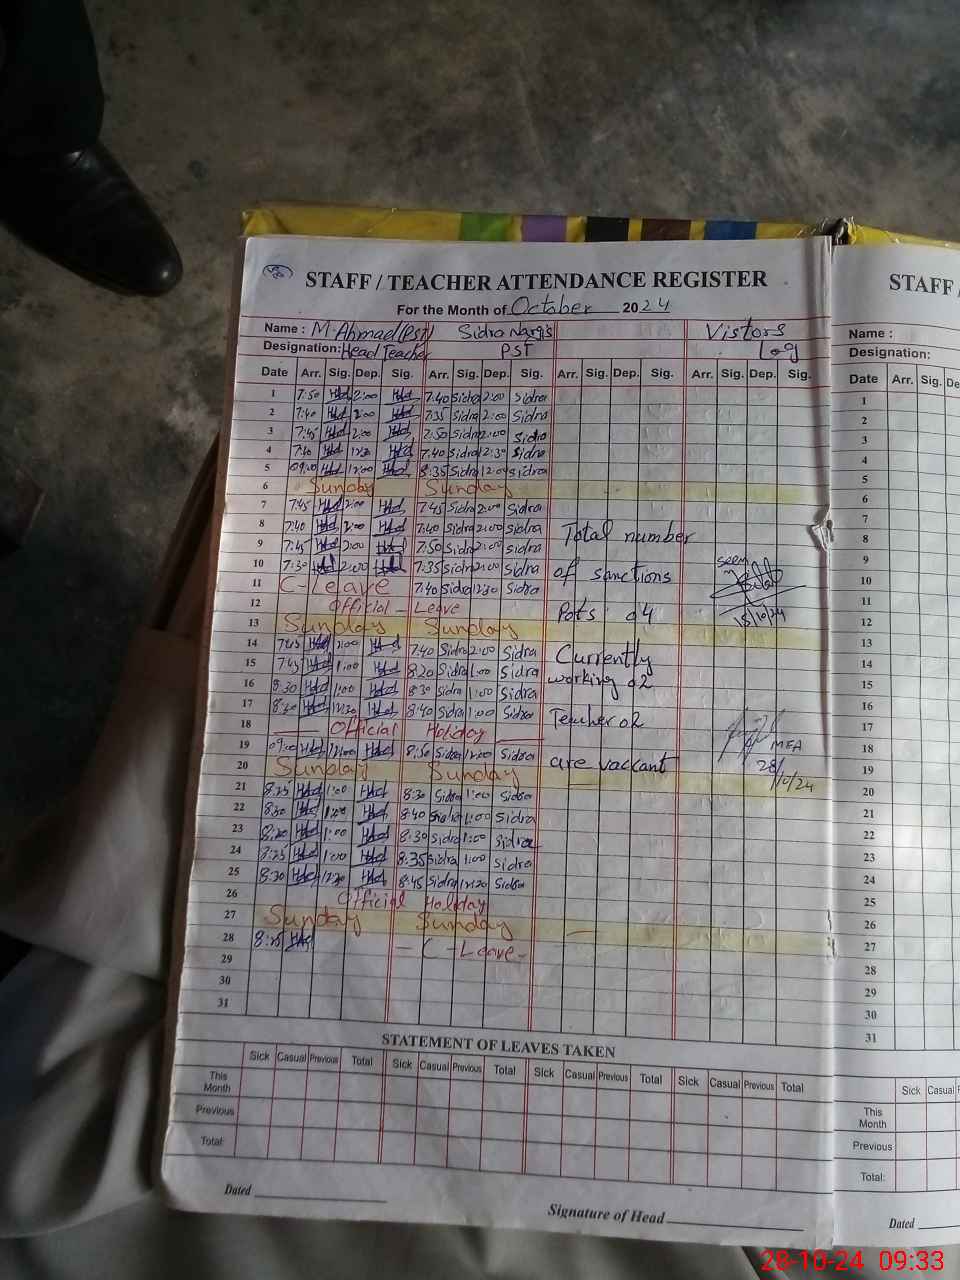 STAFF / TEACHER ATTENDANCE REGISTER
For the Month of October 2024
Name : M. Ahmad (PST) Sidra Nargis Vistors
Designation: Head Teacher PST Log
Date Arr. Sig. Dep. Sig. Arr. Sig. Dep. Sig. Arr. Sig. Dep. Sig. Arr. Sig. Dep. Sig.
1 7:50 2:00 7:40 Sidra 2:00 Sidra
2 7:40 2:00 7:35 Sidra 2:00 Sidra
3 7:45 2:00 7:50 Sidra 2:00 Sidra
4 7:40 12:30 7:40 Sidra 12:30 Sidra
5 09:00 12:00 8:35 Sidra 12:00 Sidra
6 Sunday Sunday
7 7:45 2:00 7:45 Sidra 2:00 Sidra
8 7:40 2:00 7:40 Sidra 2:00 Sidra
9 7:45 2:00 7:50 Sidra 2:00 Sidra
10 7:30 2:00 7:35 Sidra 2:00 Sidra
11 C-Leave 7:40 Sidra 12:30 Sidra
12 Official - Leave
13 Sunday Sunday
14 7:45 2:00 7:40 Sidra 2:00 Sidra
15 7:45 1:00 8:20 Sidra 1:00 Sidra
16 8:30 1:00 8:30 Sidra 1:00 Sidra
17 8:20 12:30 8:40 Sidra 1:00 Sidra
18 Official Holiday
19 09:00 12:00 8:50 Sidra 12:00 Sidra
20 Sunday Sunday
21 8:25 1:00 8:30 Sidra 1:00 Sidra
22 8:30 1:00 8:40 Sidra 1:00 Sidra
23 8:20 1:00 8:30 Sidra 1:00 Sidra
24 8:25 1:00 8:35 Sidra 1:00 Sidra
25 8:30 12:30 8:45 Sidra 12:30 Sidra
26 Official Holiday
27 Sunday Sunday
28 8:25 - C - Leave -
29
30
31
Total number
of sanctions
Pots : 04
Currently
working 02
Teacher 02
are vackant
seen
15/10/24
MEA
28/10/24
STATEMENT OF LEAVES TAKEN
Sick Casual Previous Total Sick Casual Previous Total Sick Casual Previous Total Sick Casual Previous Total
This Month
Previous
Total:
Dated
Signature of Head
STAFF /
Name :
Designation:
Date Arr. Sig. De
1
2
3
4
5
6
7
8
9
10
11
12
13
14
15
16
17
18
19
20
21
22
23
24
25
26
27
28
29
30
31
Sick Casual
This Month
Previous
Total:
Dated
28-10-24 09:33